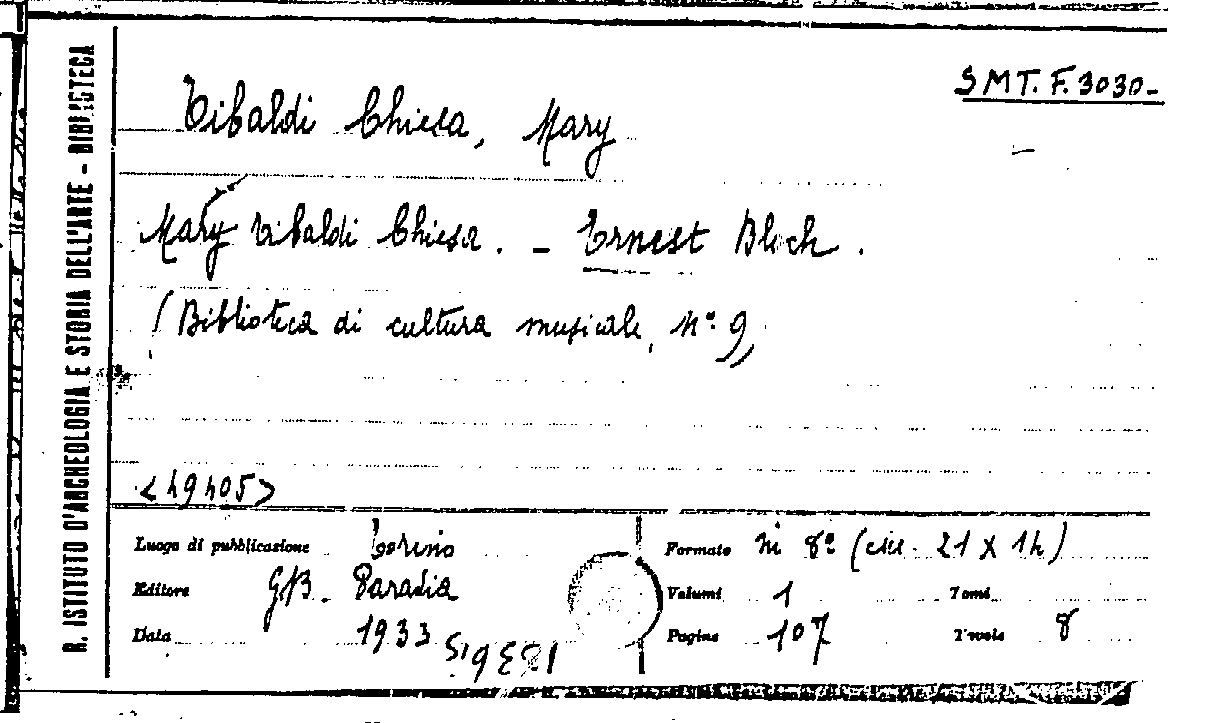 R. ISTITUTO D'ARCHEOLOGIA E STORIA DELL'ARTE - BIBLIOTECA
SMT. F. 3030-
Tibaldi Chiesa, Mary
Mary Tibaldi Chiesa. - Ernest Bloch.
(Biblioteca di cultura musicale, n° 9)
<49405>
Luogo di pubblicazione Torino
Editore G.B. Paravia
Data 1933
Formato in 8° (cm. 21 X 14)
Volumi 1 Tomi
Pagine 107 Tavole 8